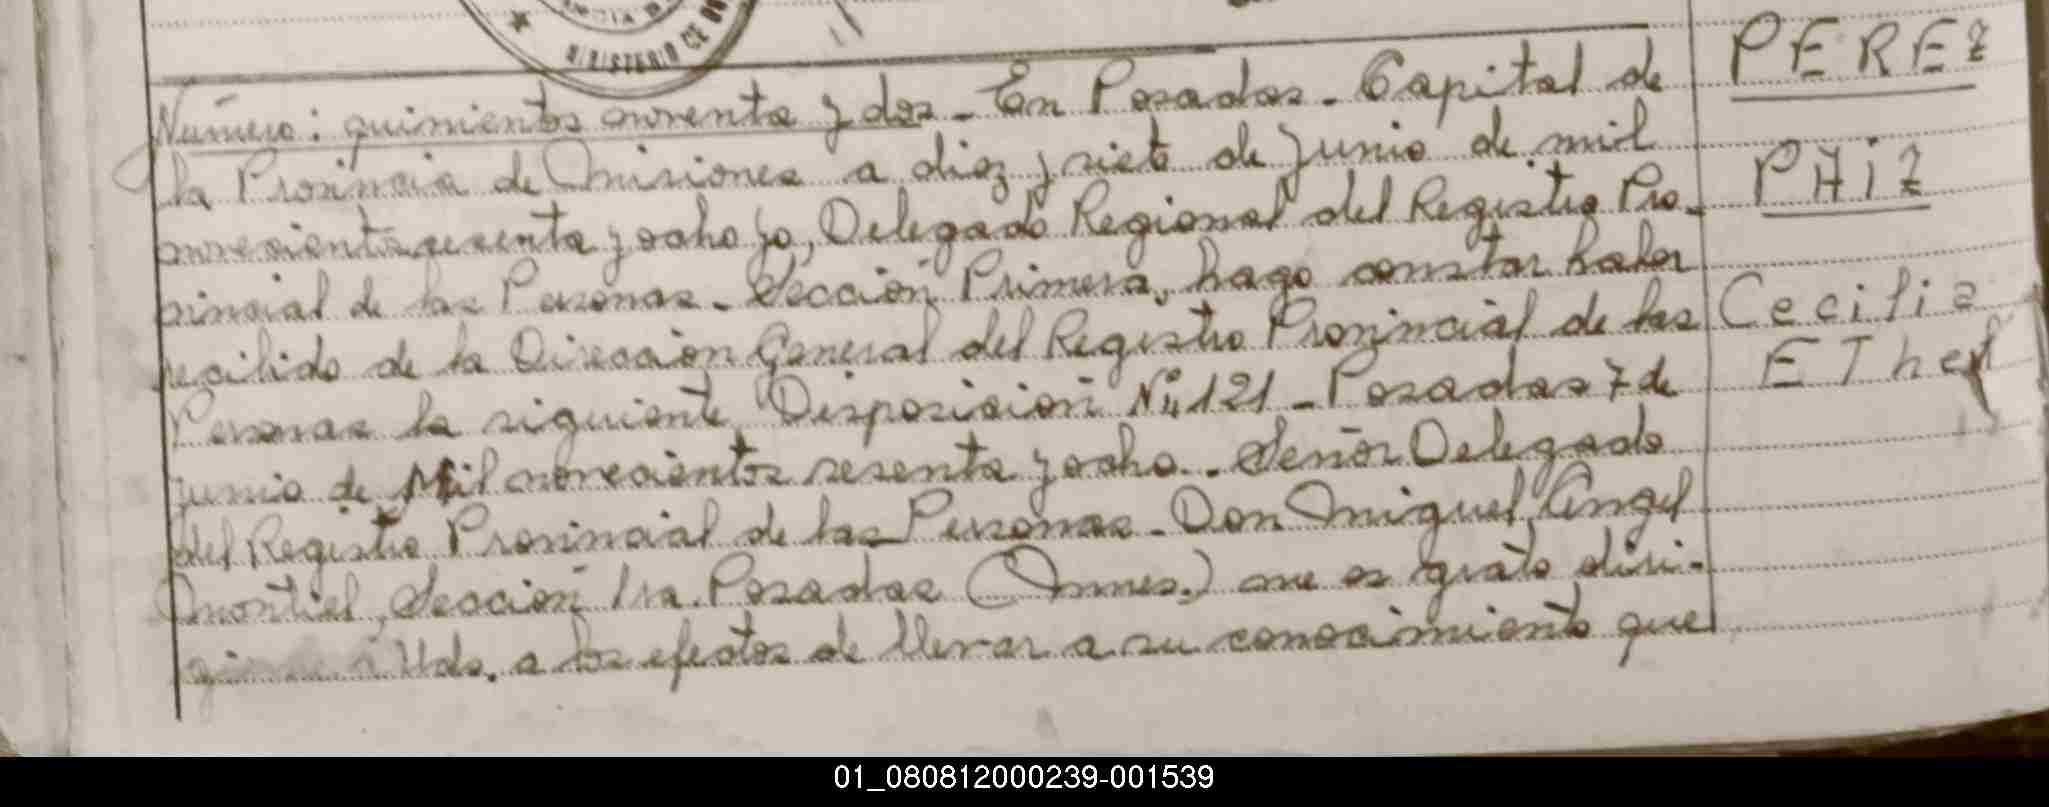 MINISTERIO DE
Número: quinientos noventa y dos - En Posadas - Capital de
la Provincia de Misiones a diez y siete de junio de mil
novecientos sesenta y ocho yo, Delegado Regional del Registro Pro-
vincial de las Personas - Sección Primera, hago constar haber
recibido de la Dirección General del Registro Provincial de las
Personas la siguiente Disposición Nº 121 - Posadas 7 de
junio de Mil novecientos sesenta y ocho. - Señor Delegado
del Registro Provincial de las Personas - Don Miguel Angel
Montiel, Sección 1ra. Posadas (Mnes.) me es grato diri-
Uds. a los efectos de llevar a su conocimiento que
PEREZ
PAIZ
Cecilia
EThel
01_080812000239-001539